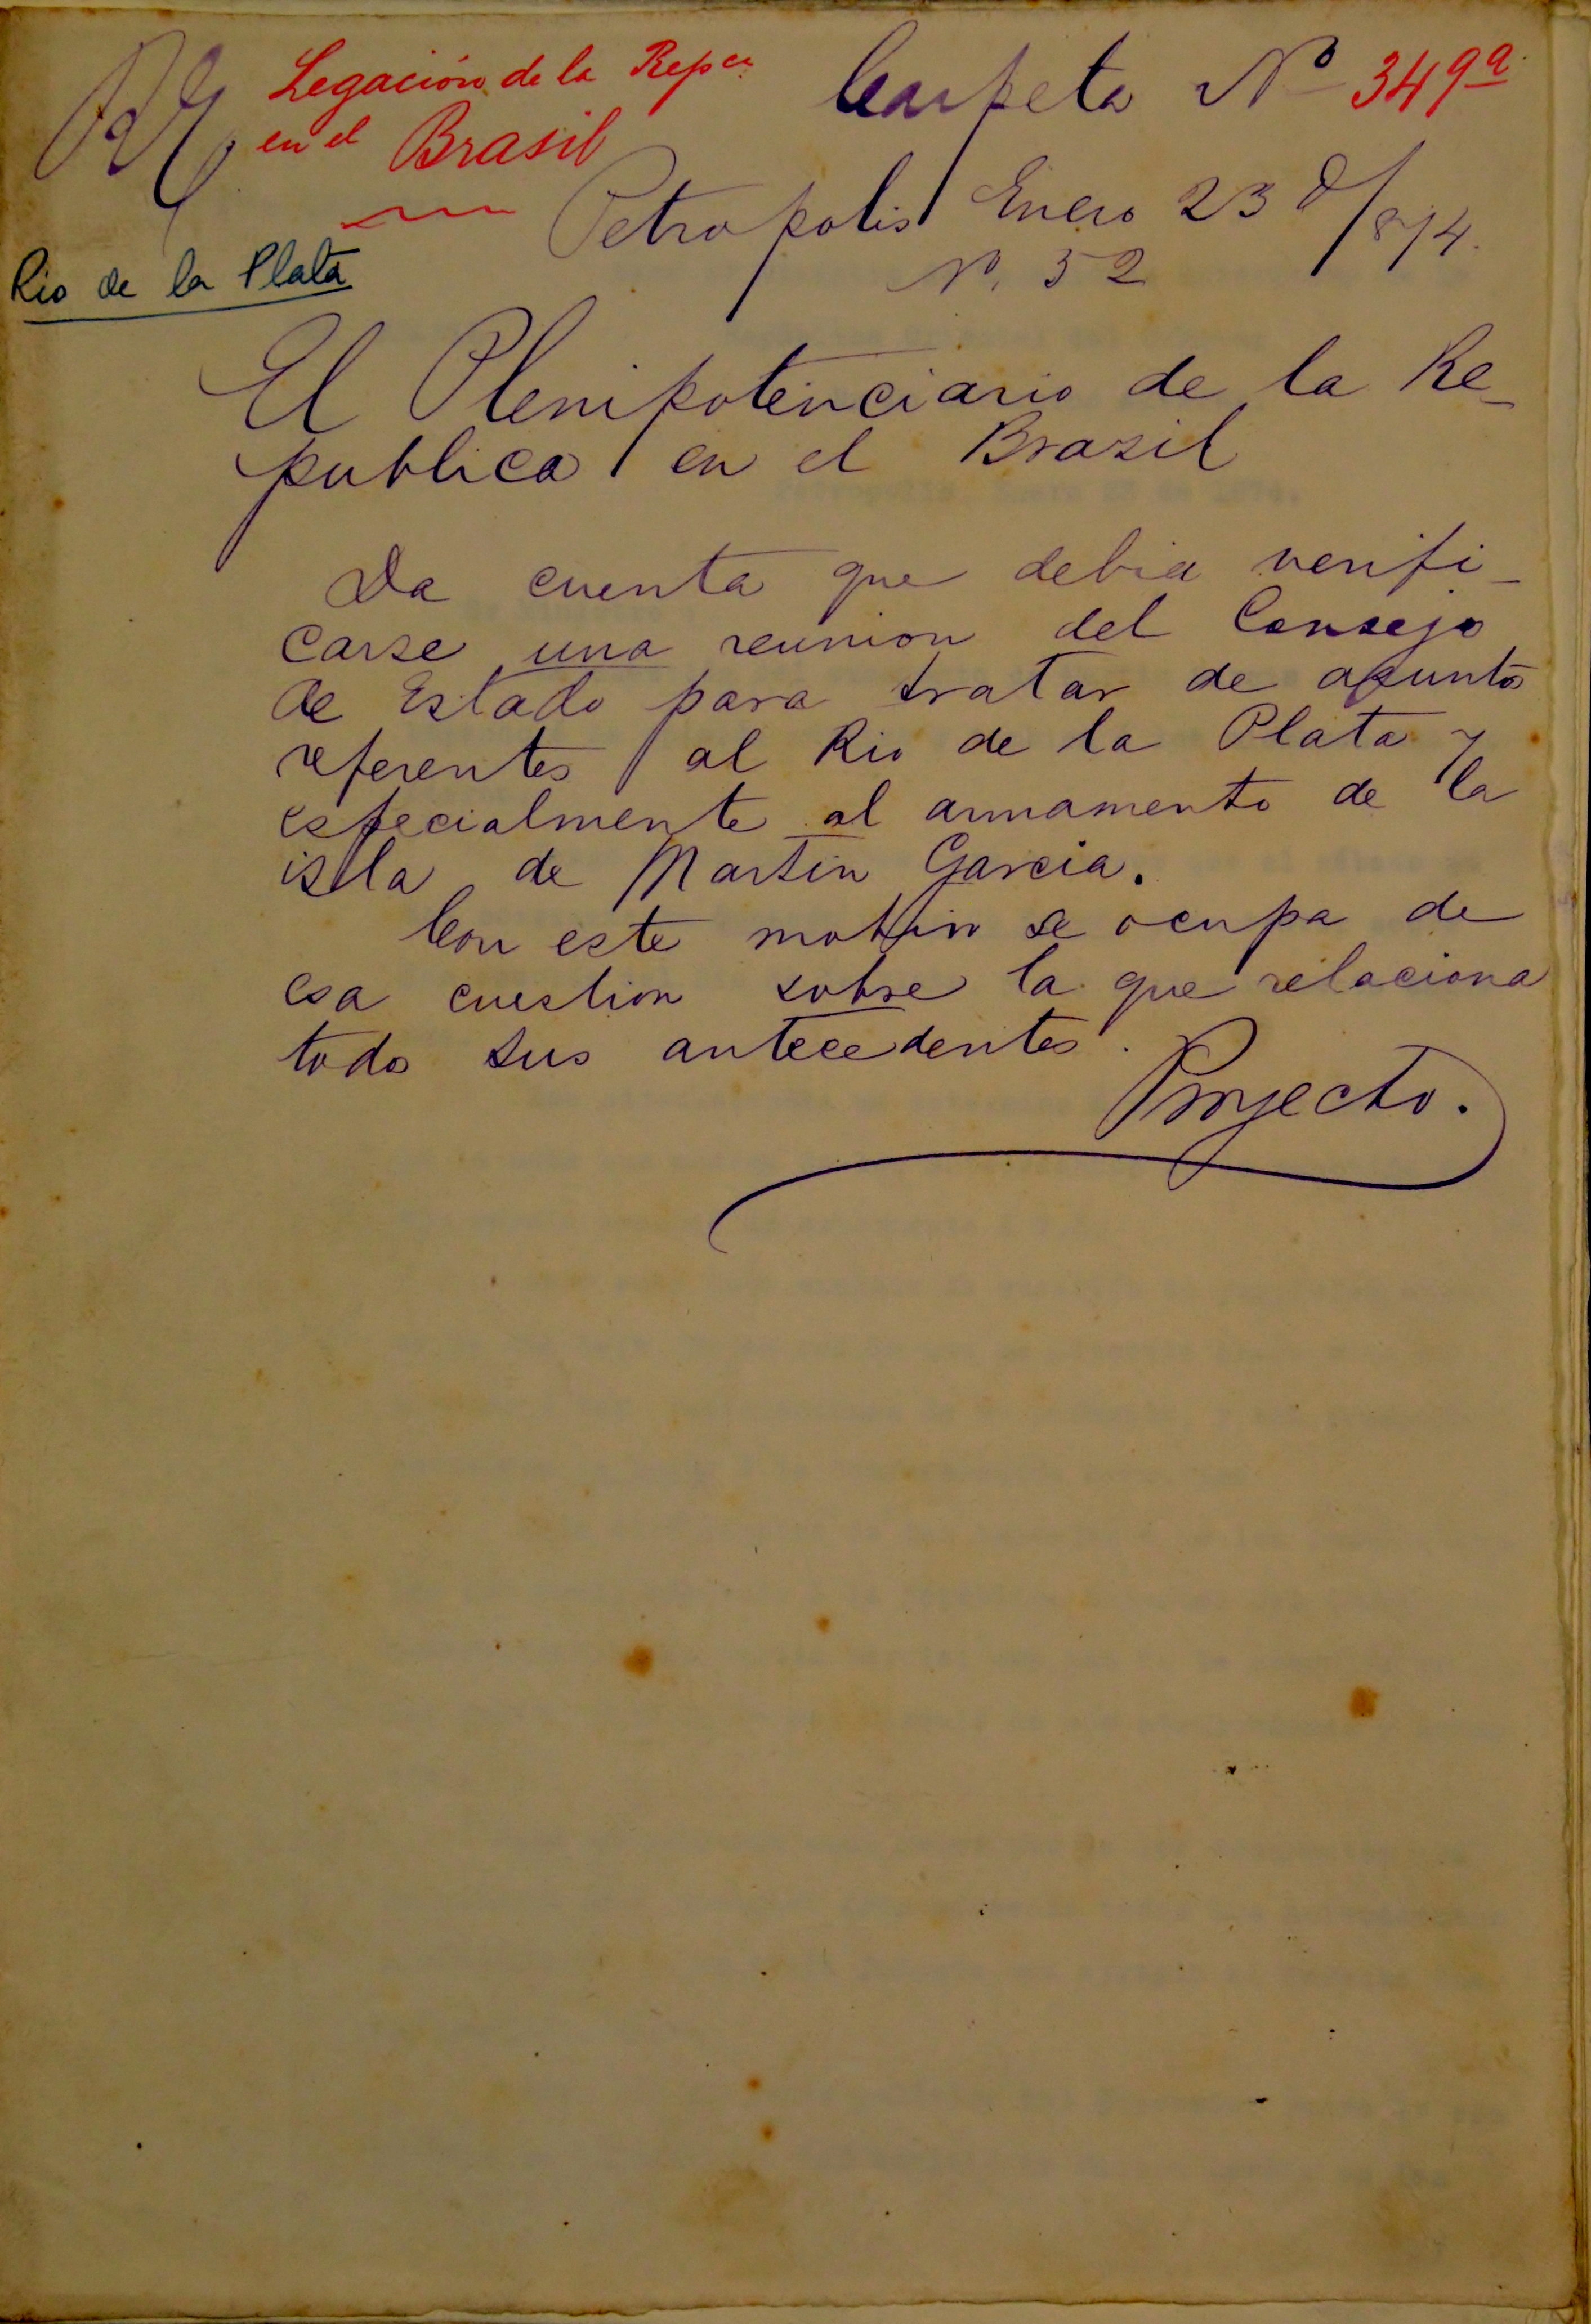 Legación de la Repca
en el Brasil
Carpeta No 349a
Petropolis Enero 23 d/874.
N. 52
Rio de la Plata
El Plenipotenciario de la Re-
publica en el Brasil
Da cuenta que debia verifi-
carse una reunion del Consejo
de Estado para tratar de asuntos
referentes al Rio de la Plata y
especialmente al armamento de la
isla de Martin Garcia.
Con este motivo se ocupa de
esa cuestion sobre la que relaciona
todo sus antecedentes.
Proyecto.